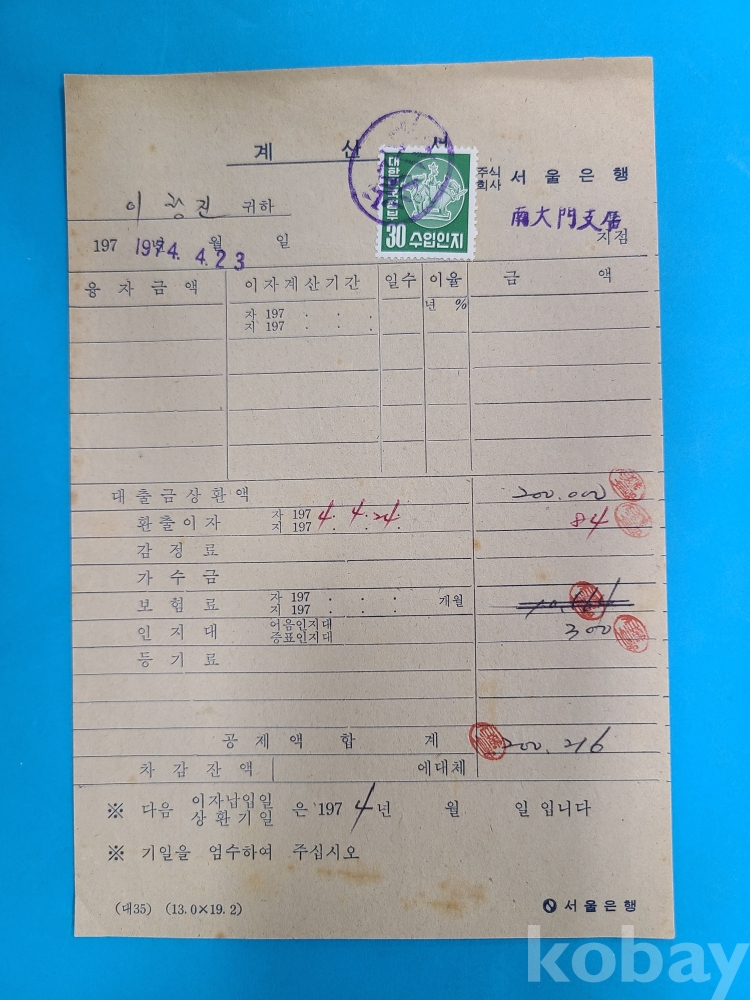 계 산 서
대한민국정부
30 수입인지
주식회사 서울은행
이창진 귀하
南大門支店
지점
197 년 월 일
1974. 4. 23
융자금액 이자계산기간 일수 이율 금 액
년 %
자 197 . . .
지 197 . . .
대출금상환액 200.000
환출이자 자 197 4. 4. 24. 84
지 197 . . .
감정료
가수금
보험료 자 197 . . . 개월
지 197 . . .
인지대 어음인지대 300
증표인지대
등기료
공제액합계 200.216
차감잔액 에대체
※ 다음 이자납입일 은 '197 4년 월 일 입니다
상환기일
※ 기일을 엄수하여 주십시오
(대35) (13.0×19.2) 서울은행
kobay